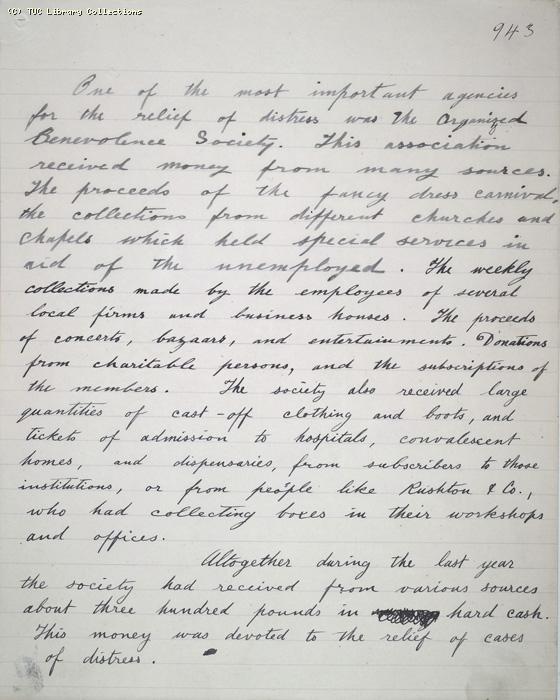 (C) TUC Library Collections
943
One of the most important agencies
for the relief of distress was The Organized
Benevolence Society. This association
received money from many sources.
The proceeds of the fancy dress carnival,
the collections from different churches and
chapels which held special services in
aid of the unemployed. The weekly
collections made by the employees of several
local firms and business houses. The proceeds
of concerts, bazaars, and entertainments. Donations
from charitable persons, and the subscriptions of
the members. The society also received large
quantities of cast-off clothing and boots, and
tickets of admission to hospitals, convalescent
homes, and dispensaries, from subscribers to those
institutions, or from people like Rushton & Co.,
who had collecting boxes in their workshops
and offices.
Altogether during the last year
the society had received from various sources
about three hundred pounds in hard cash.
This money was devoted to the relief of cases
of distress.